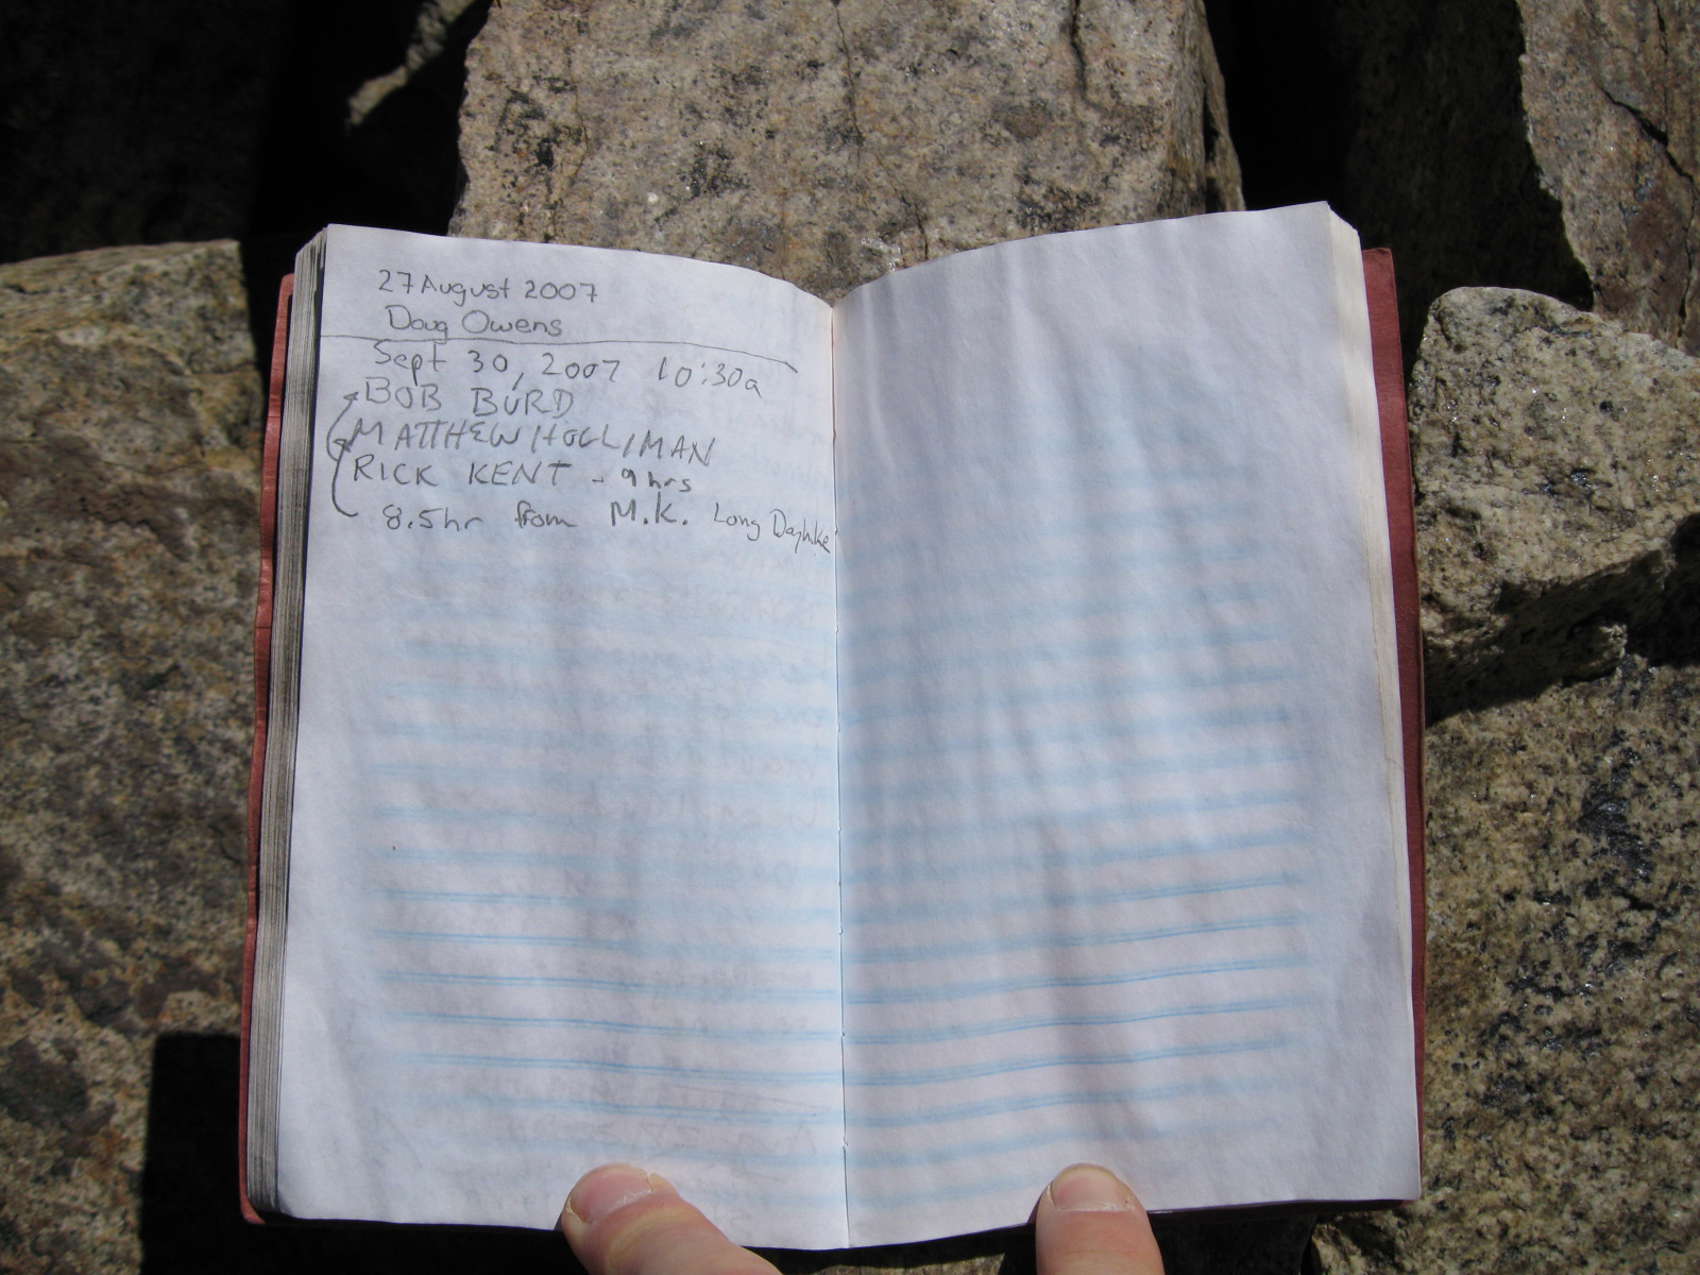 27 August 2007
Doug Owens
Sept 30, 2007 10:30a
BOB BURD
MATTHEW HOLLIMAN
RICK KENT - 9 hrs
8.5hr from M.K. Long Dayhike